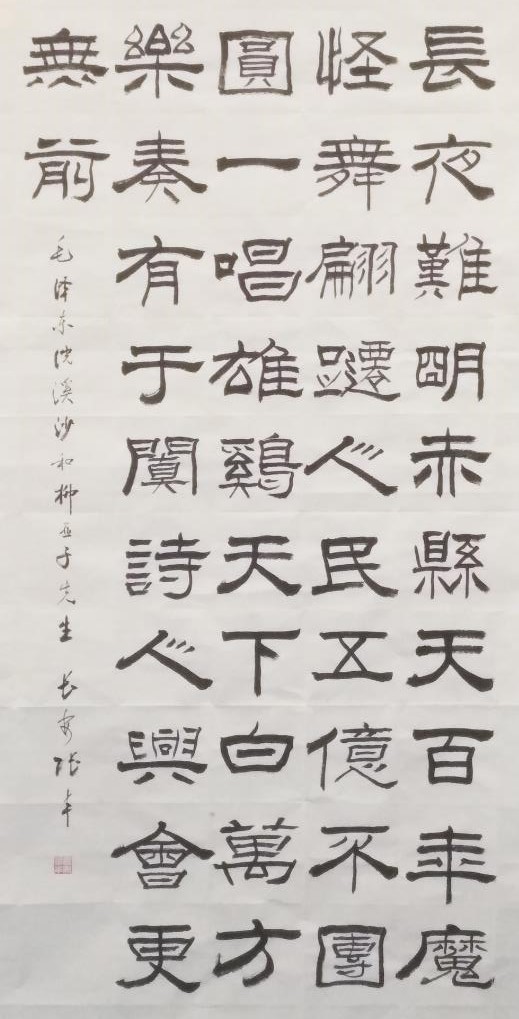 長夜難明赤縣天百年魔
怪舞翩躚人民五億不團
圓一唱雄鷄天下白萬方
樂奏有于闐詩人興會更
無前
毛泽东浣溪沙和柳亚子先生 长安张